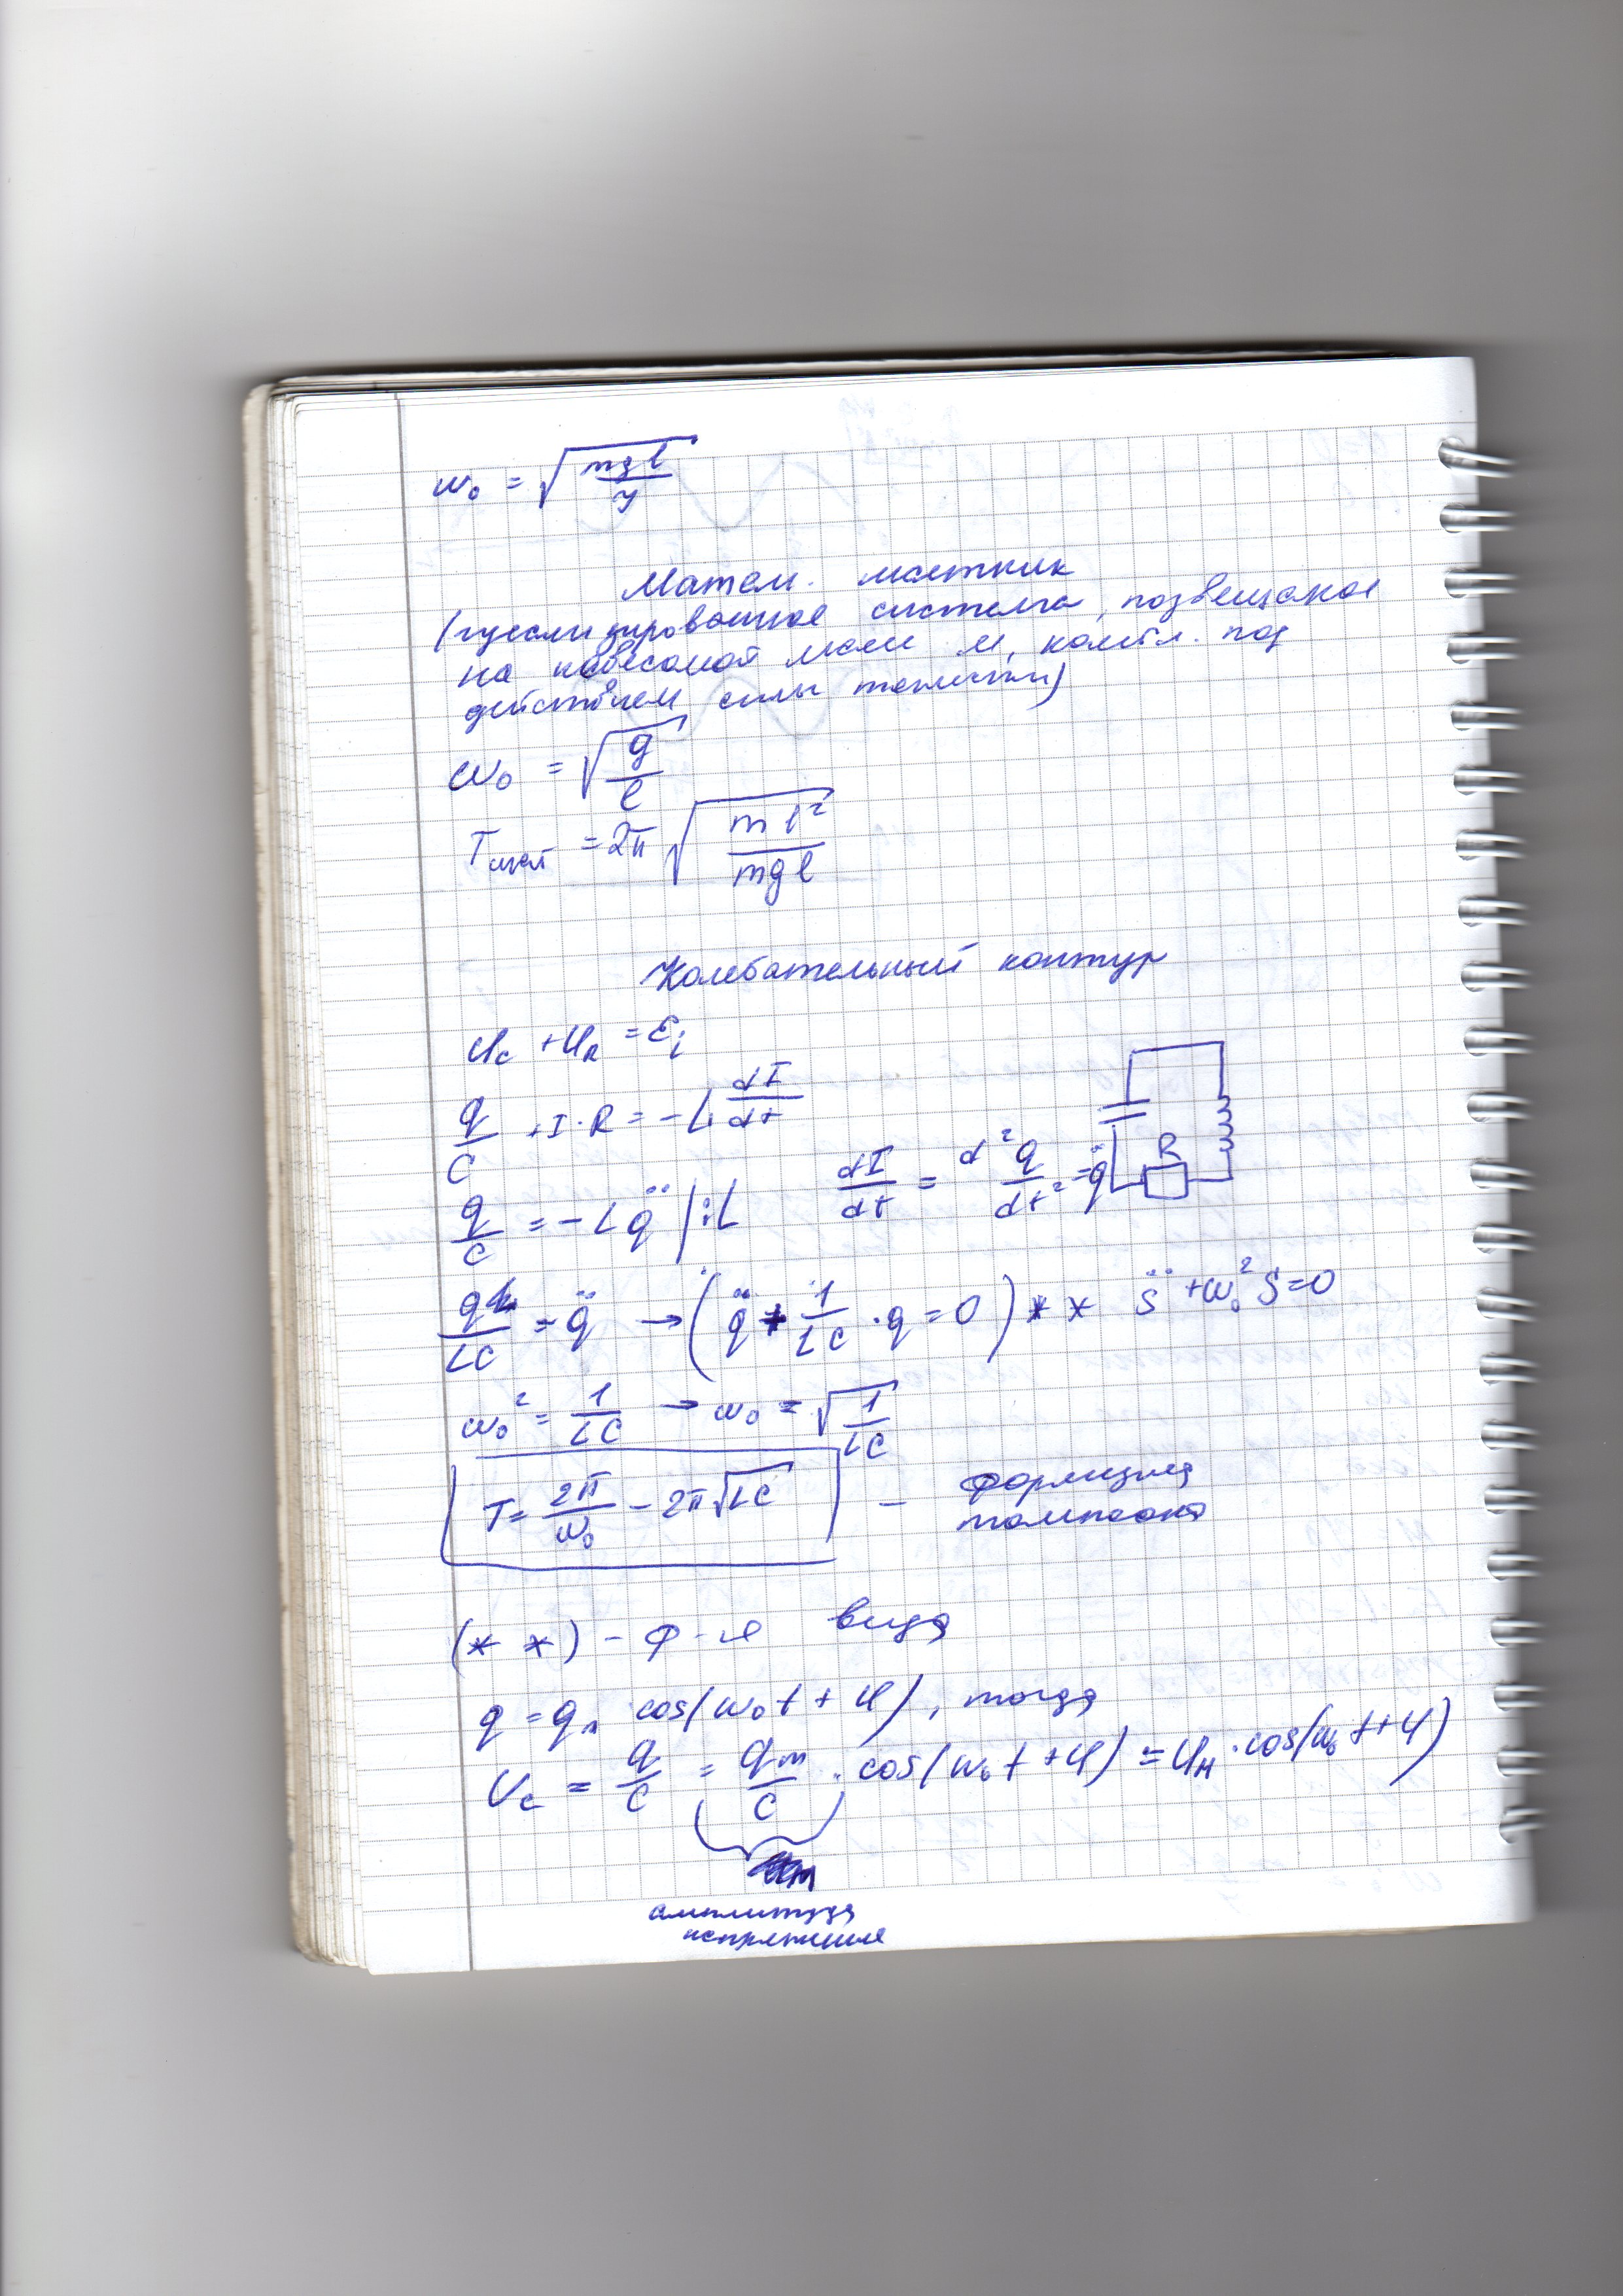 ω₀ = √(mgl / J)
Матем. маятник
(идеализированная система, подвешаная
на невесомой нити м, колебл. под
действием силы тяжести)
ω₀ = √(g / l)
T = 2π √(ml² / mgl)
Колебательный контур
U_c + U_R = ε_i
q/C + I·R = -L dI/dt
R
q/C = -L q̈ |:L
dI/dt = d²q/dt² = q̈
q/LC = q̈ → (q̈ + 1/LC · q = 0) ** S̈ + ω₀² S = 0
ω₀² = 1/LC → ω₀ = √(1/LC)
T = 2π/ω₀ - 2π√LC - Формула
томпсона
(**) - ф-я вида
q = qₘ cos(ω₀t + φ), тогда
U_c = q/C = qₘ/C · cos(ω₀t + φ) = Uₘ · cos(ω₀t + φ)
амплитуда
напряжения